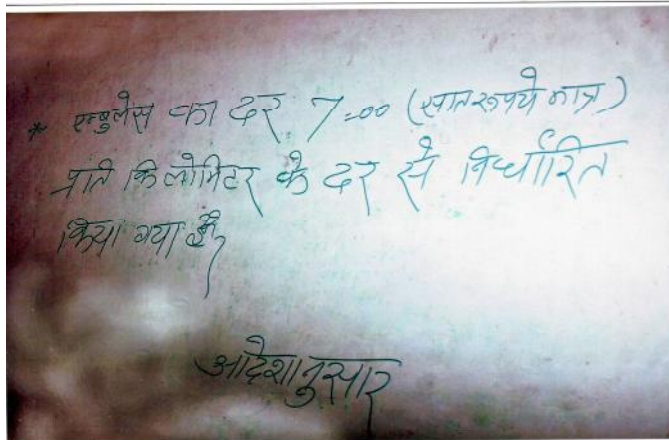 * एम्बुलेस का दर 7=00 (सात रूपये मात्र)
प्रति किलोमिटर के दर से निर्धारित
किया गया है,
आदेशानुसार